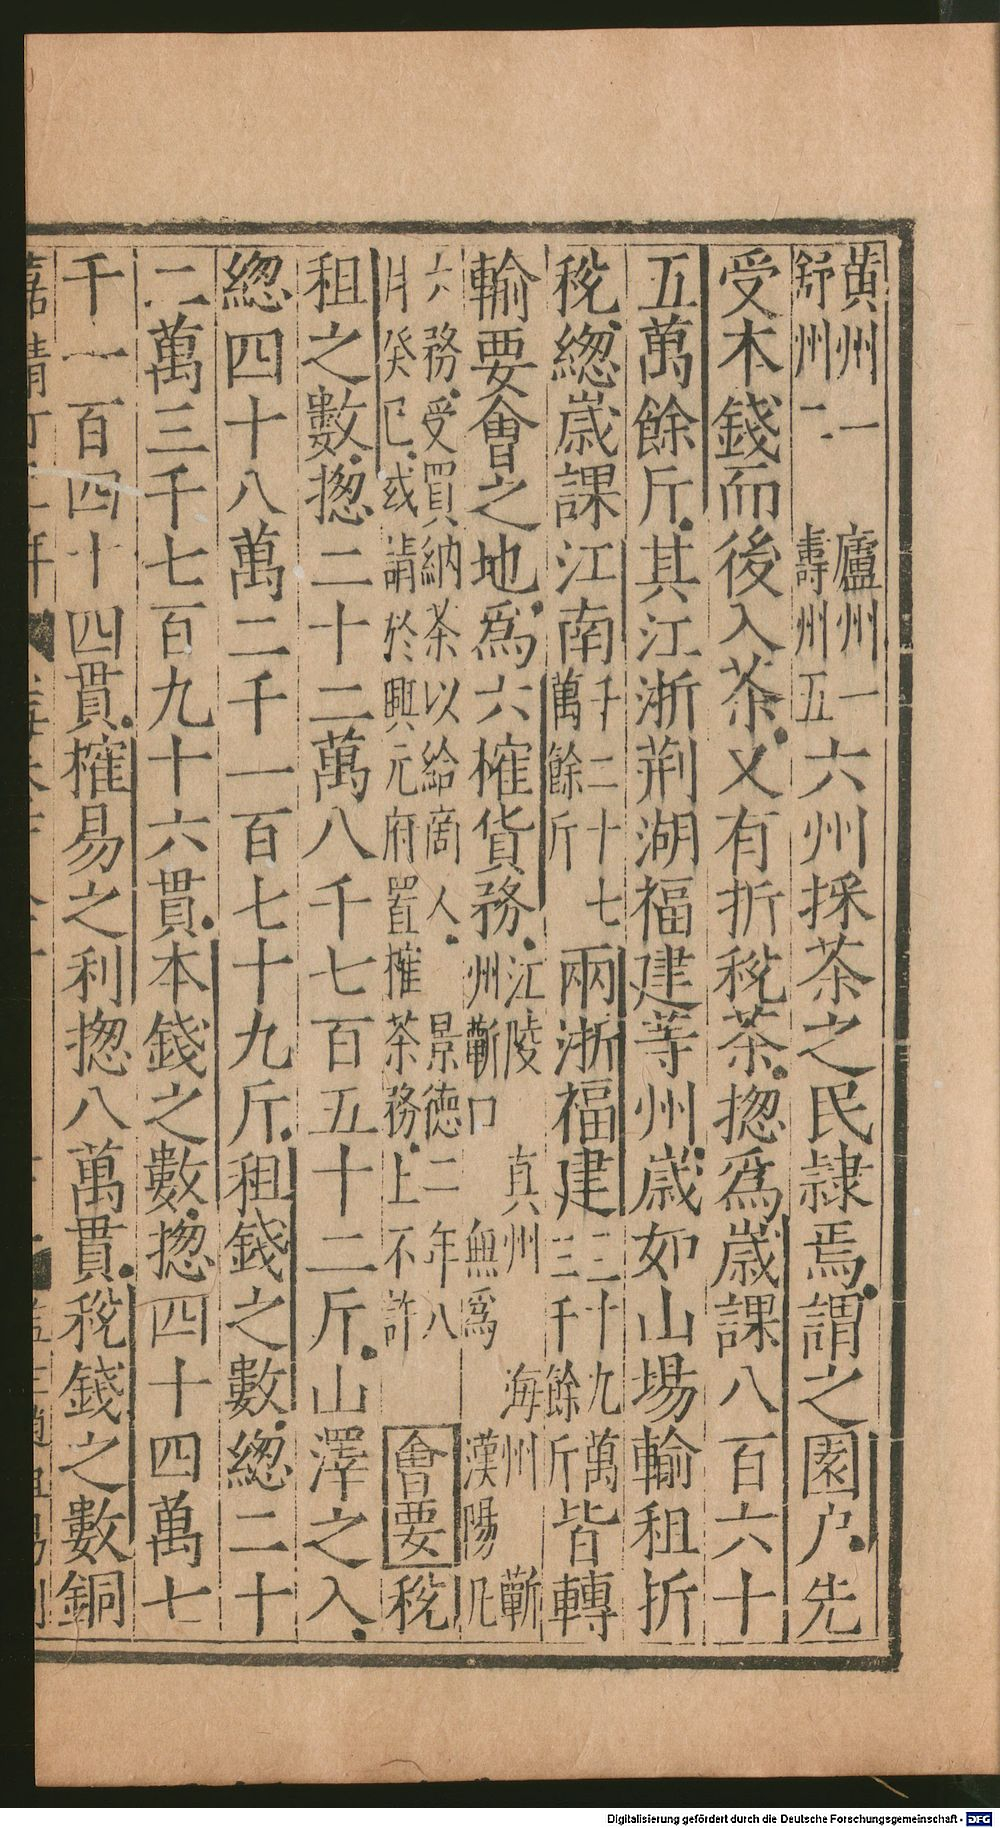 黄州一 廬州一舒州二 壽州五六州採茶之民隷焉謂之園户先
受本錢而後入茶又有折稅茶揔爲歲課八百六十
五萬餘斤其江浙荆湖福建等州歲如山場輸租折
稅總歲課江南千二十七萬餘斤兩浙福建三十九萬三千餘斤皆轉
輸要會之地爲六榷貨務江陵 真州 海州 蘄州蘄口 無爲 漢陽 凡
六務受買納茶以給商人 景德二年八月癸巳或請於興元府置榷茶務上不許 會要稅
租之數揔二十二萬八千七百五十二斤山澤之入
總四十八萬二千一百七十九斤租錢之數總二十
二萬三千七百九十六貫本錢之數揔四十四萬七
千一百四十四貫榷易之利揔八萬貫稅錢之數銅
嘉靖
Digitalisierung gefördert durch die Deutsche Forschungsgemeinschaft - DFG